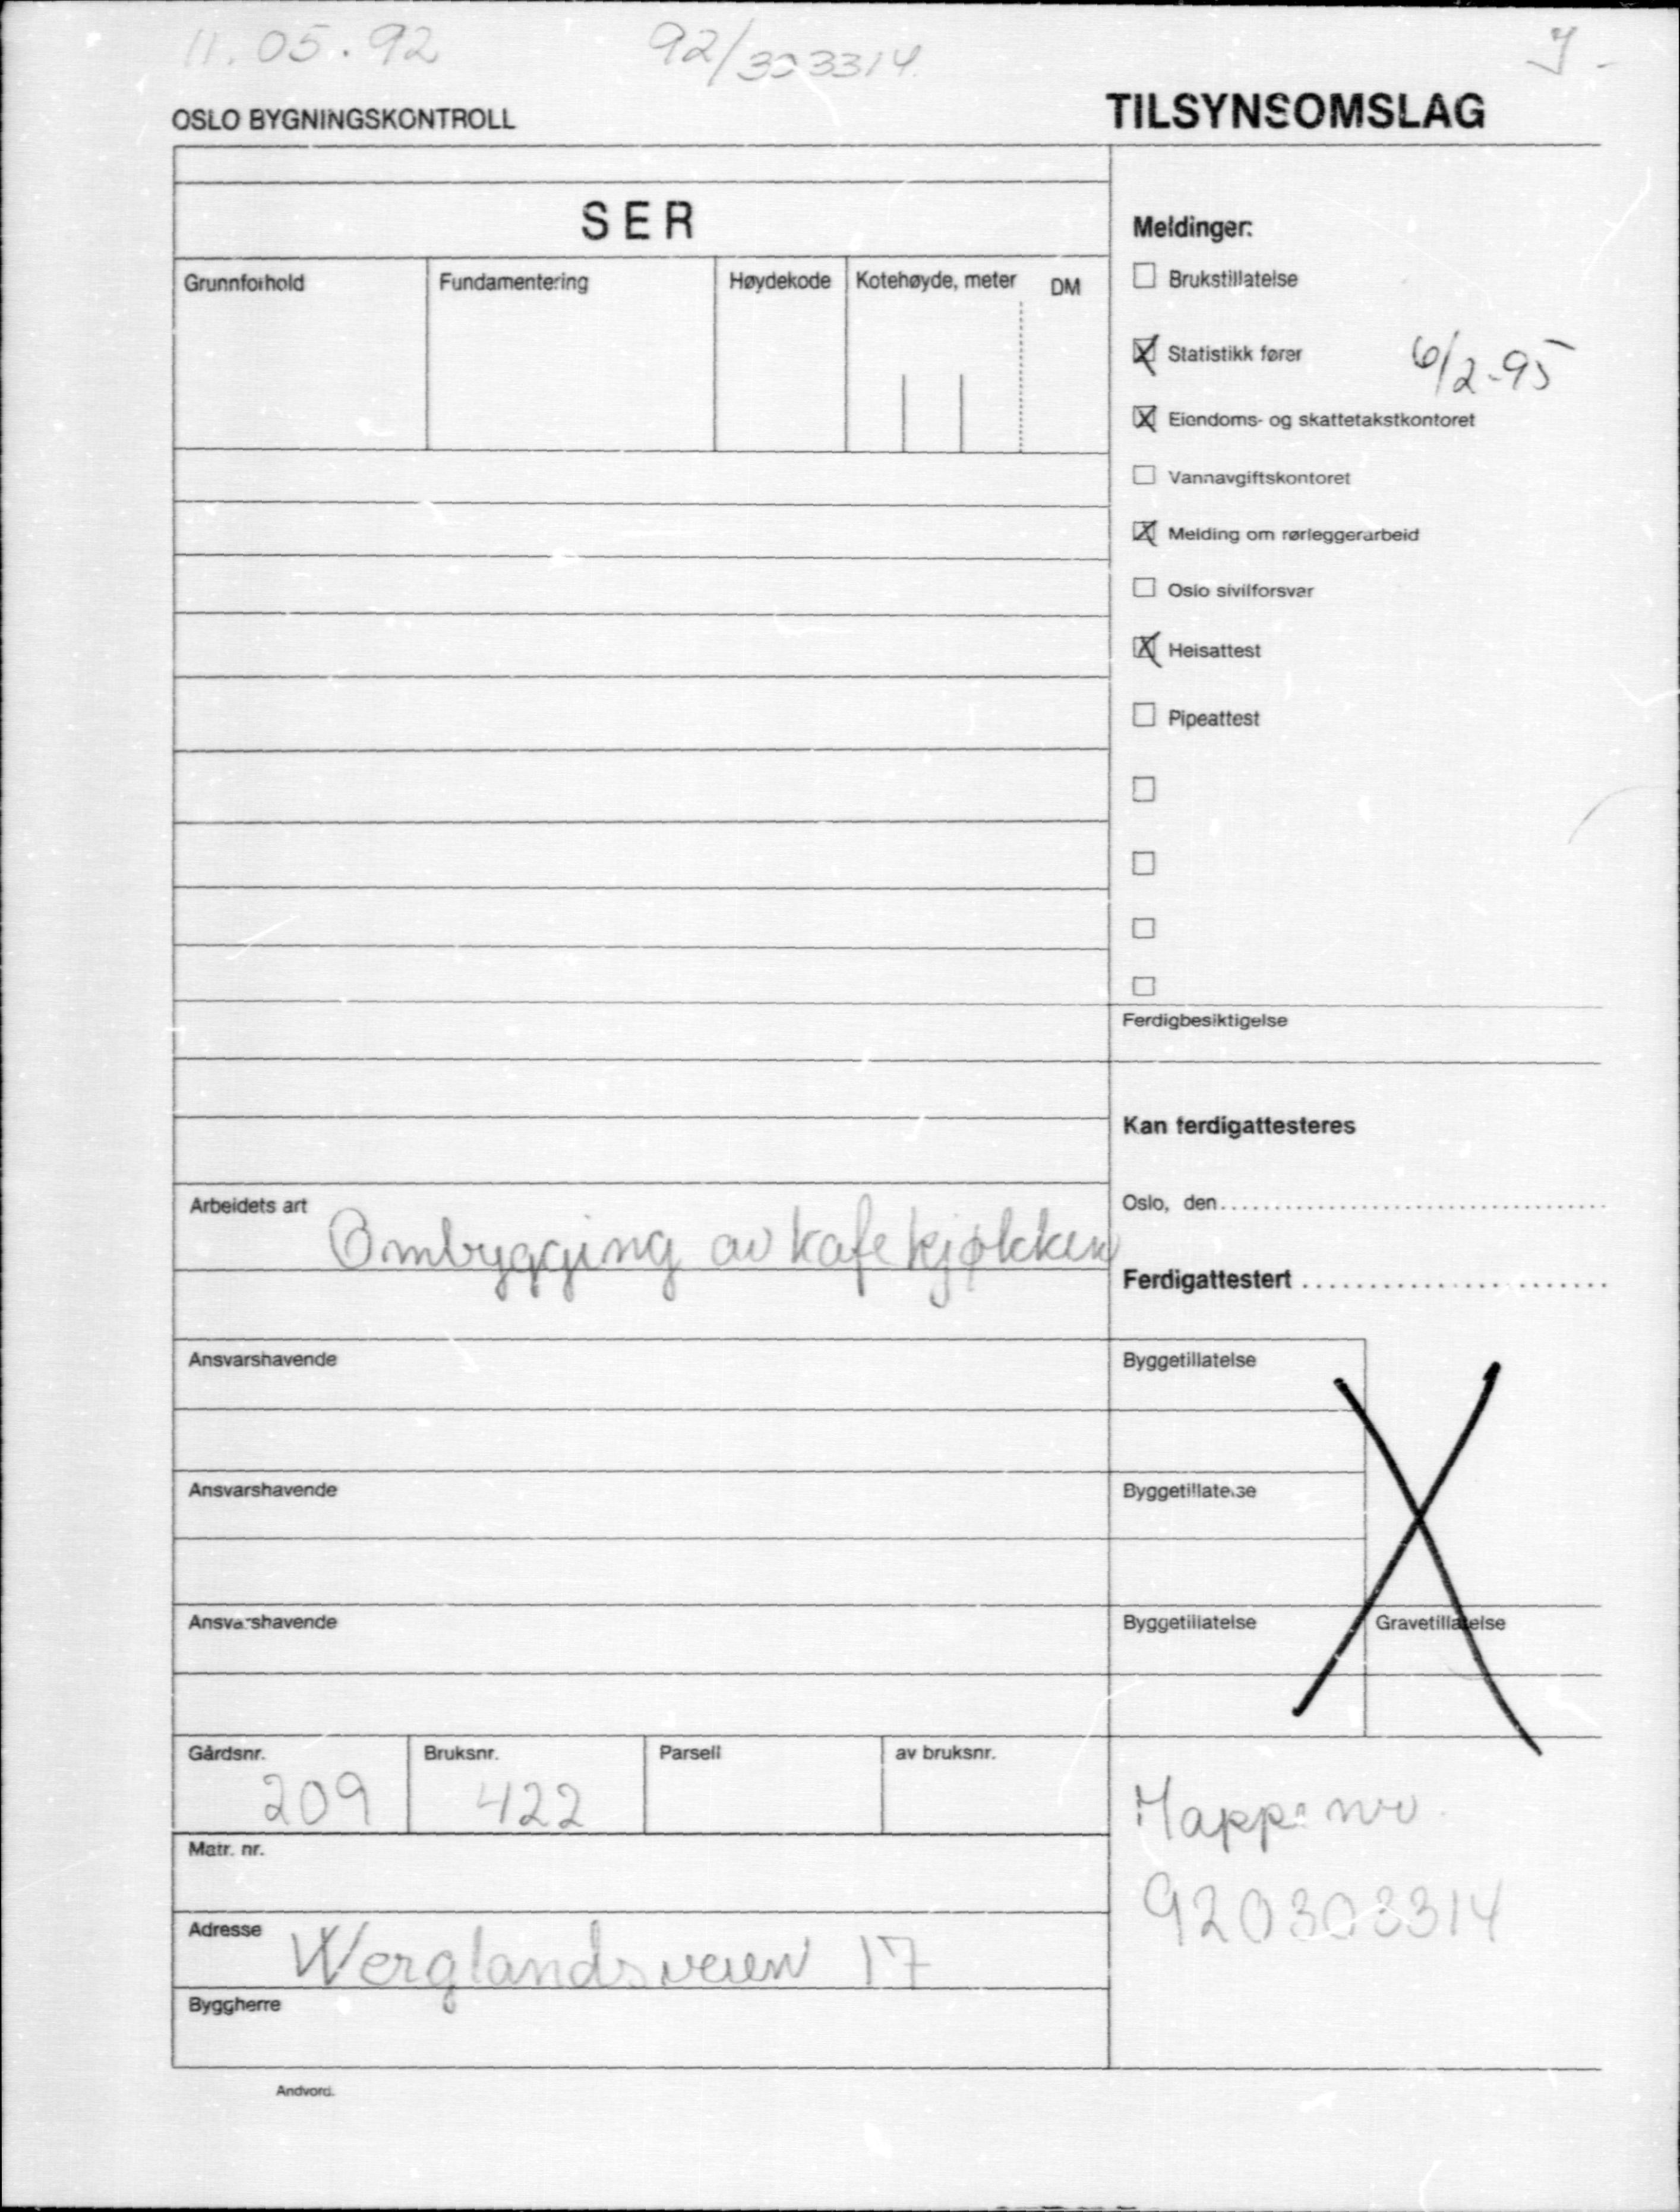 11.05.92 92/303314. J-
OSLO BYGNINGSKONTROLL TILSYNSOMSLAG
SER
Grunnforhold Fundamentering Høydekode Kotehøyde, meter DM
Meldinger:
Brukstillatelse
Statistikk fører 6/2-95
Eiendoms- og skattetakstkontoret
Vannavgiftskontoret
Melding om rørleggerarbeid
Oslo sivilforsvar
Heisattest
Pipeattest
Ferdigbesiktigelse
Kan ferdigattesteres
Arbeidets art Ombygging av kafe kjøkken
Oslo, den
Ferdigattestert
Ansvarshavende Byggetillatelse
Ansvarshavende Byggetillatelse
Ansvarshavende Byggetillatelse Gravetillatelse
Gårdsnr. Bruksnr. Parsell av bruksnr.
209 422
Mappe nr.
920303314
Matr. nr.
Adresse Werglandsveien 17
Byggherre
Andvord.